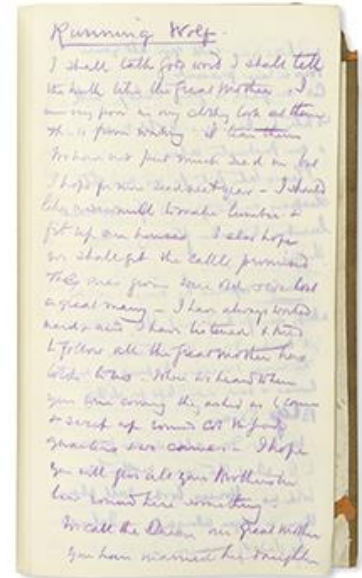 Running Wolf.
I shall talk good word I shall tell
the truth like the Great Mother. I
am very poor in my clothes look at them
from working it
We have not put much seed in but
I hope for more seed next year – I should
like a saw mill to make lumber &
fit up our houses I also hope
we shall get the cattle promised
ones given were old & we lost
a great many – I have always worked
hard and I have listened & tried
to follow all the Great Mother has
told us. When we heard when
you were coming they asked us to come
& up round at the
quarters & we came – I hope
you will give all your Brothers
here something.
We call the Queen our Great Mother
you have married her daughter